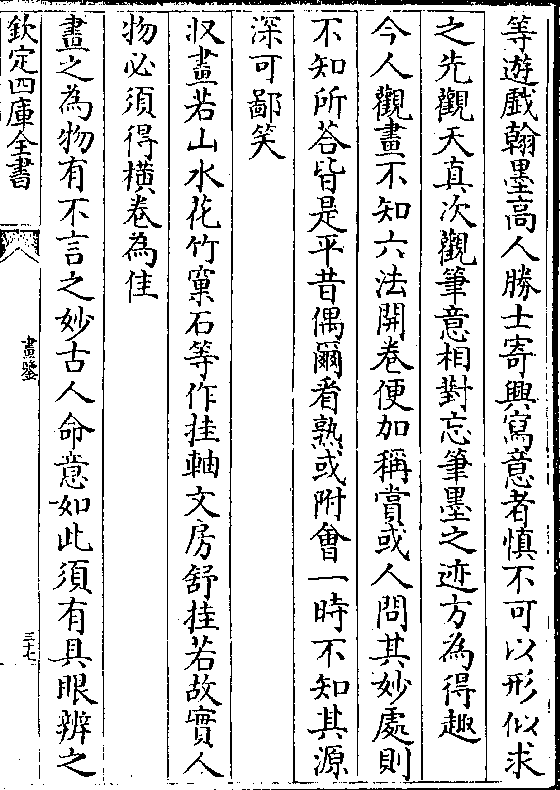 等遊戲翰墨高人勝士寄興寫意者慎不可以形似求
之先觀天真次觀筆意相對忘筆墨之迹方為得趣
今人觀畫不知六法開卷便加稱賞或人問其妙處則
不知所荅皆是平昔偶爾看熟或附會一時不知其源
深可鄙笑
收畫若山水花竹窠石等作挂軸文房舒挂若故實人
物必須得橫卷為佳
畫之為物有不言之妙古人命意如此須有具眼辨之
欽定四庫全書
畫鑒
三七